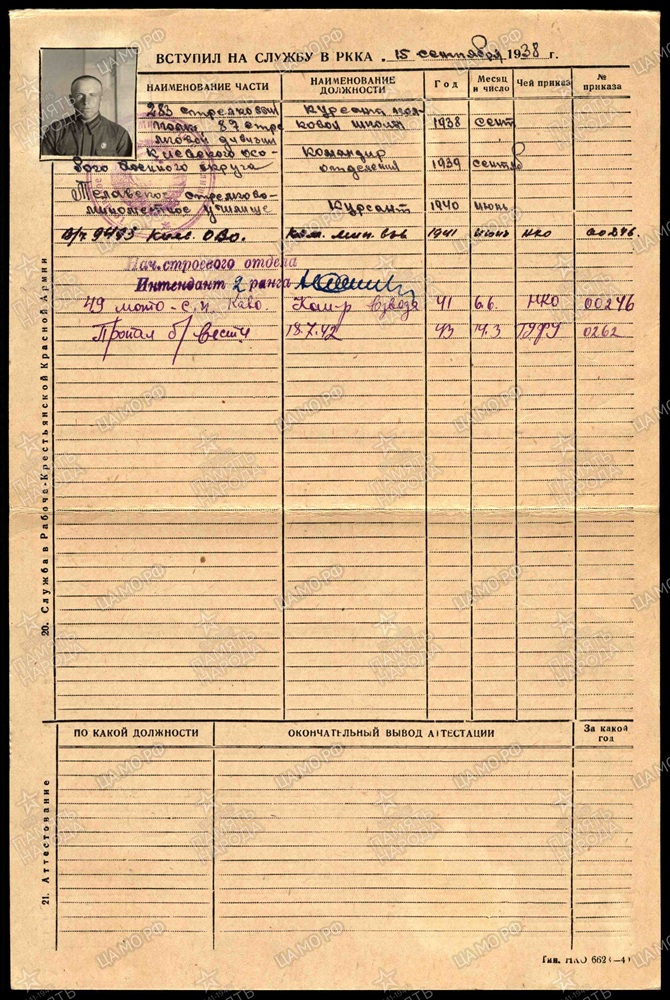 ВСТУПИЛ НА СЛУЖБУ В РККА „15 сентября 1938 г.
НАИМЕНОВАНИЕ ЧАСТИ
НАИМЕНОВАНИЕ ДОЛЖНОСТИ
Год
Месяц и число
Чей приказ
№ приказа
283 стрелковый Курсант пол-
полк, 87 стре ковой школы 1938 сент
лковой дивизии
Киевского осо- Командир
бого военного округа отделения 1939 сентяб
стрелково-
миномётное училище Курсант 1940 июнь
в/ч 9493 ОВО. Ком. мин. взв 1941 июнь НКО 00246.
Нач. строевого отдела
Интендант 2 ранга
49 мото-с.п. Ком-р взвода 41 6.6. НКО 00246
Пропал б/вести 18.7.42 43 14.3 ГУФУ 0262
20. Служба в Рабоче-Крестьянской Красной Армии
ПО КАКОЙ ДОЛЖНОСТИ
ОКОНЧАТЕЛЬНЫЙ ВЫВОД АТТЕСТАЦИИ
За какой год
21. Аттестование
Тип. НКО 662 (—4)
ЦАМО.РФ
ПАМЯТЬ НАРОДА